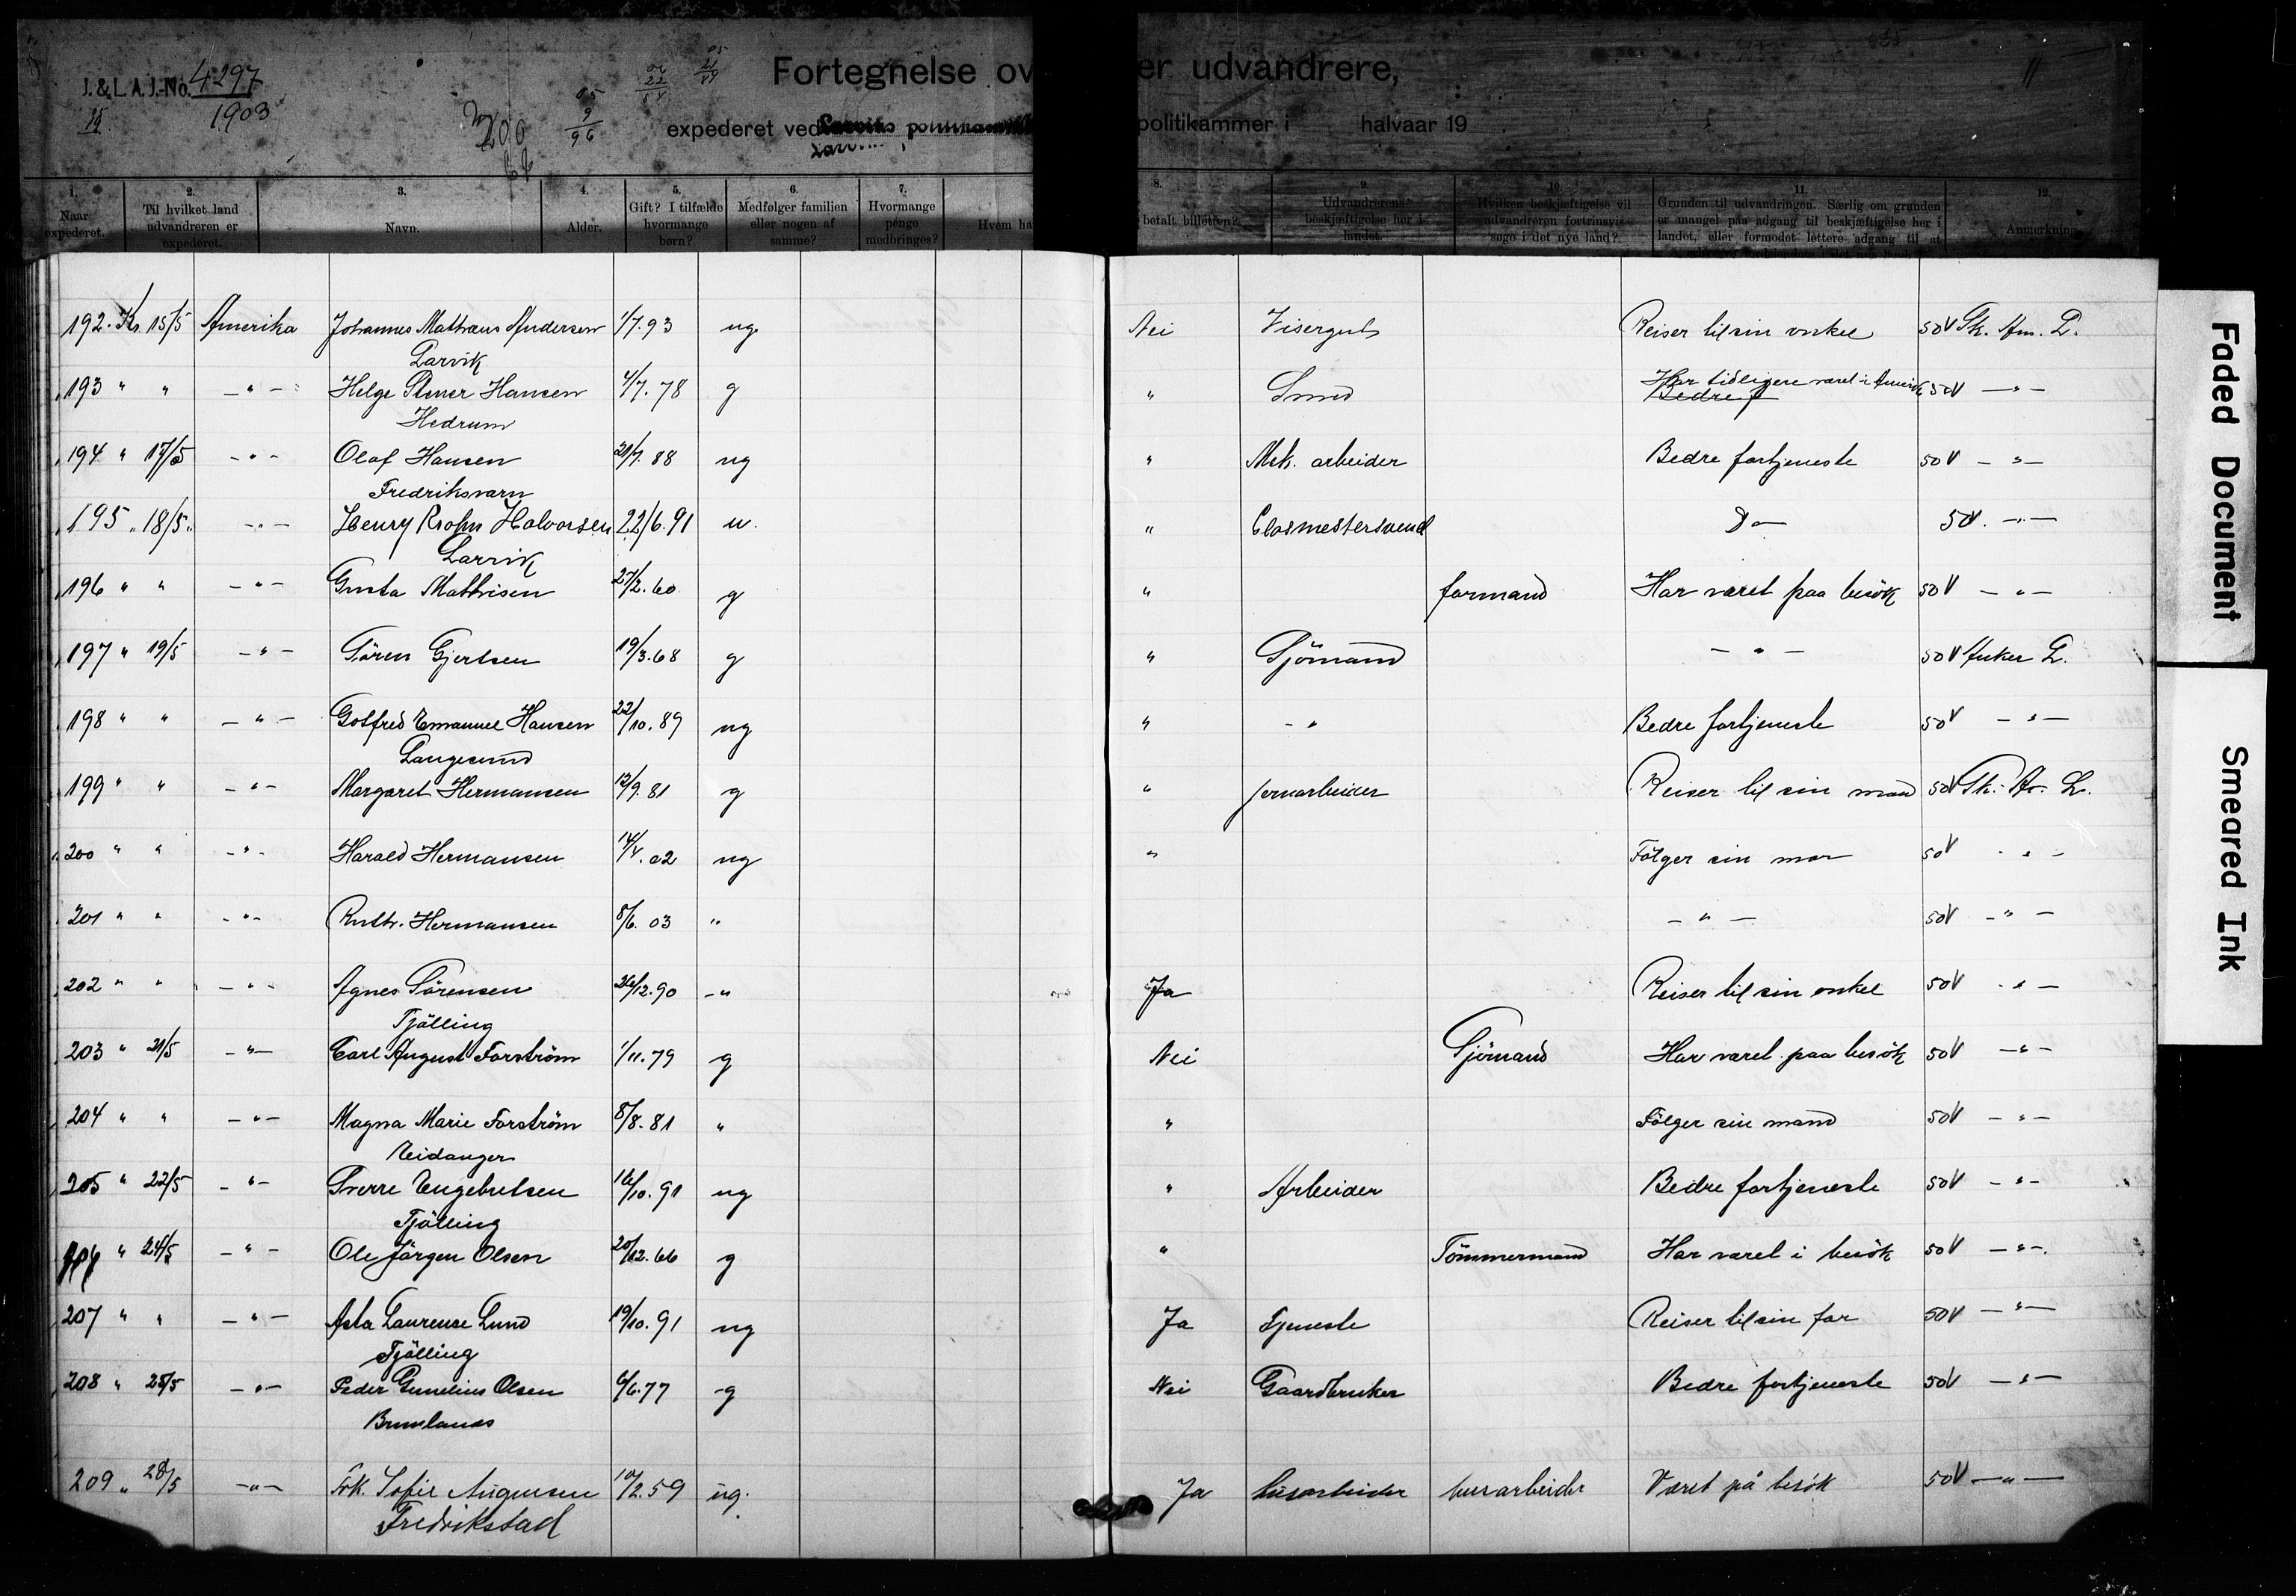 J. & L. A. J.-No. 4297
1903
200
05
9
96
Fortegnelse over udvandrere,
expederet ved Larviks politikammer i halvaar 19
1. Naar expederet.
2. Til hvilket land udvandreren er expederet.
3. Navn.
4. Alder.
5. Gift? I tilfælde hvormange børn?
6. Medfølger familien eller nogen af samme?
7. Hvormange penge medbringes?
8. Hvem ha betalt billetten?
9. Udvandrerens beskjæftigelse her i landet.
10. Hvilken beskjæftigelse vil udvandreren fortrinsvis søge i det nye land?
11. Grunden til udvandringen. Særlig om grunden er mangel paa adgang til beskjæftigelse her i landet, eller formodet lettere adgang til at
12. Anmerkning.
192. Kr. 15/5 Amerika Johannes Mathæus Andersen 1/7.93 ug. Nei Visergut Reiser til sin onkel 50V Sk. Am. L.
Larvik
193 " " - " - Helge Stener Hansen 4/7.78 g " Smed Har tidligere været i Amerika 50V - " -
Hedrum Bedre f
194 " 17/5 - " - Olaf Hansen 21/7.88 ug " Mek. arbeider Bedre fortjeneste 50V - " -
Fredriksværn
195 " 18/5 " - " - Henry Krohn Halvorsen 22/6.91 u. " Glasmestersvend Do 50V. - " -
Larvik
196 " " - " - Gusta Mathisen 27/2.60 g " formand Har været paa besök 50V - " -
197 " 19/5 - " - Sören Gjertsen 19/3.68 g " Sjömand - " - 50V Anker L.
198 " " - " - Gotfred Emanuel Hansen 22/10.89 ug " - " Bedre fortjeneste 50V - " -
Langesund
199 " " - " - Margaret Hermansen 12/9.81 g " jernarbeider Reiser til sin mand 50V Sk. Am. L.
200 " " - " - Harald Hermansen 14/4.02 ug " Fölger sin mor 50V - " -
201 " " - " - Ruth Hermansen 8/6.03 " - " - 50V - " -
202 " " - " - Agnes Sörensen 26/12.90 - " Ja Reiser til sin onkel 50V - " -
Tjölling
203 " 21/5 - " - Carl August Forström 1/11.79 g Nei Sjömand Har været paa besök 50V - " -
204 " " - " - Magna Marie Forström 8/8.81 " " Fölger sin mand 50V - " -
Eidanger
205 " 22/5 - " - Sverre Engebretsen 16/10.91 ug " Arbeider Bedre fortjeneste 50V - " -
Tjölling
206 " 24/5 - " - Ole Jörgen Olsen 20/12.66 g " Tömmermand Har været i besök 50V - " -
207 " " - " - Asta Laurense Lund 19/10.91 ug Ja Tjeneste Reiser til sin far 50V - " -
Tjölling
208 " 25/5 - " - Peder Gunelius Olsen 6/6.77 g Nei Gaardbruker Bedre fortjeneste 50V - " -
Brunlanes
209 " 28/5 - " - Frk. Sofie Augensen 10/2.59 ug. Ja husarbeider husarbeider Været på besök 50V - " -
Fredrikstad
Faded Document
Smeared Ink